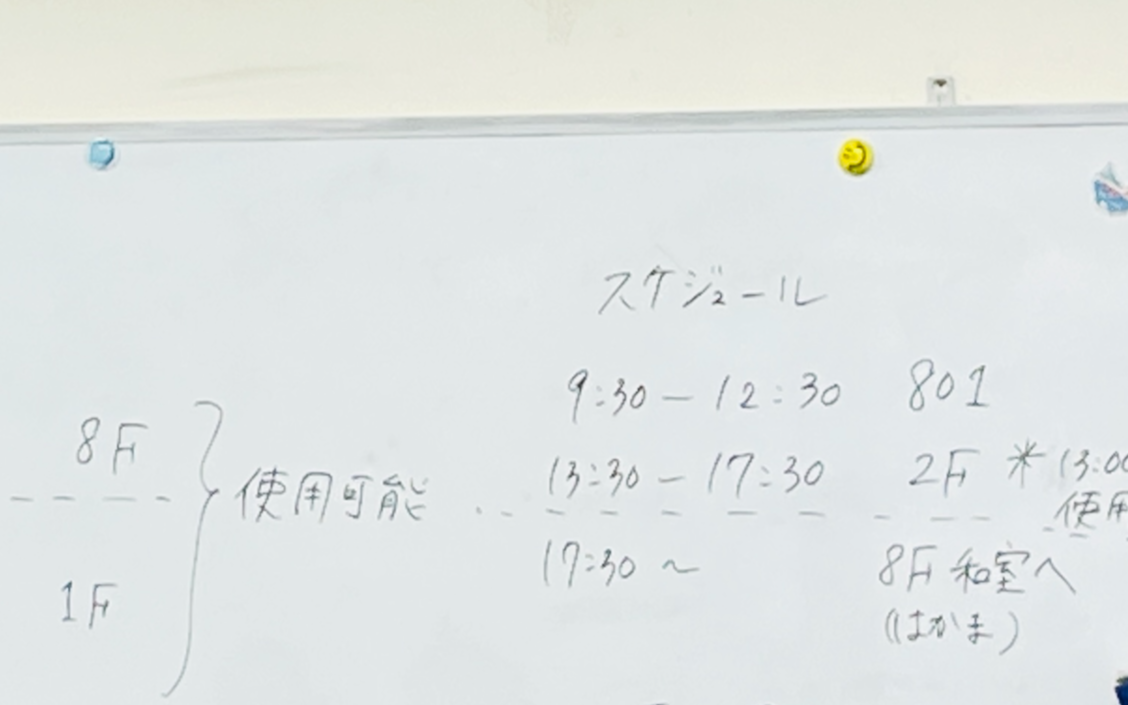 スケジュール
9:30 － 12:30 801
13:30 － 17:30 2F ＊13:00
使用
17:30 ～ 8F 和室へ
(はかま)
8F
使用可能
1F